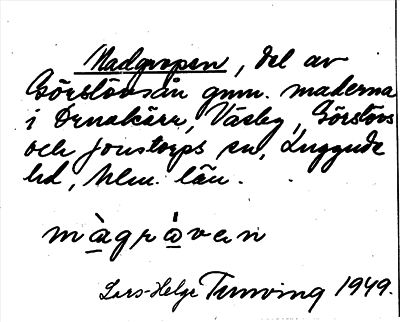 Madgropen, del av
Görslövsån gnm. maderna
i Ornakärr, Väsby, Görslövs
och Jonstorps sn, Luggude
hd, Mlm. län.
màgrå̀ven
Lars-Helge Tunving 1949.